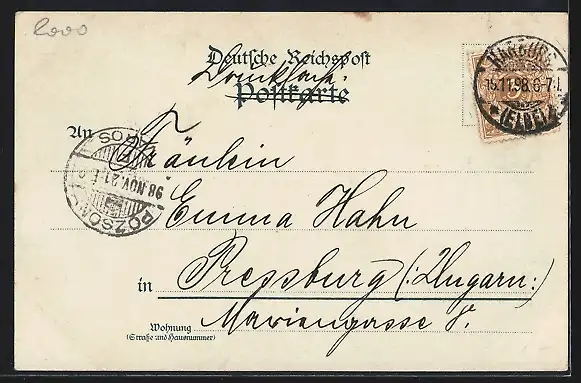 2000
Deutsche Reichspost
Drucksache.
Postkarte
HARBURG
15.11.98.6-7N.
* (ELBE) *
An
Fräulein
POZSONY
98 NOV. 21
Emma Hahn
in Pressburg (:Ungarn:)
Wohnung Mariengasse 8.
(Straße und Hausnummer)